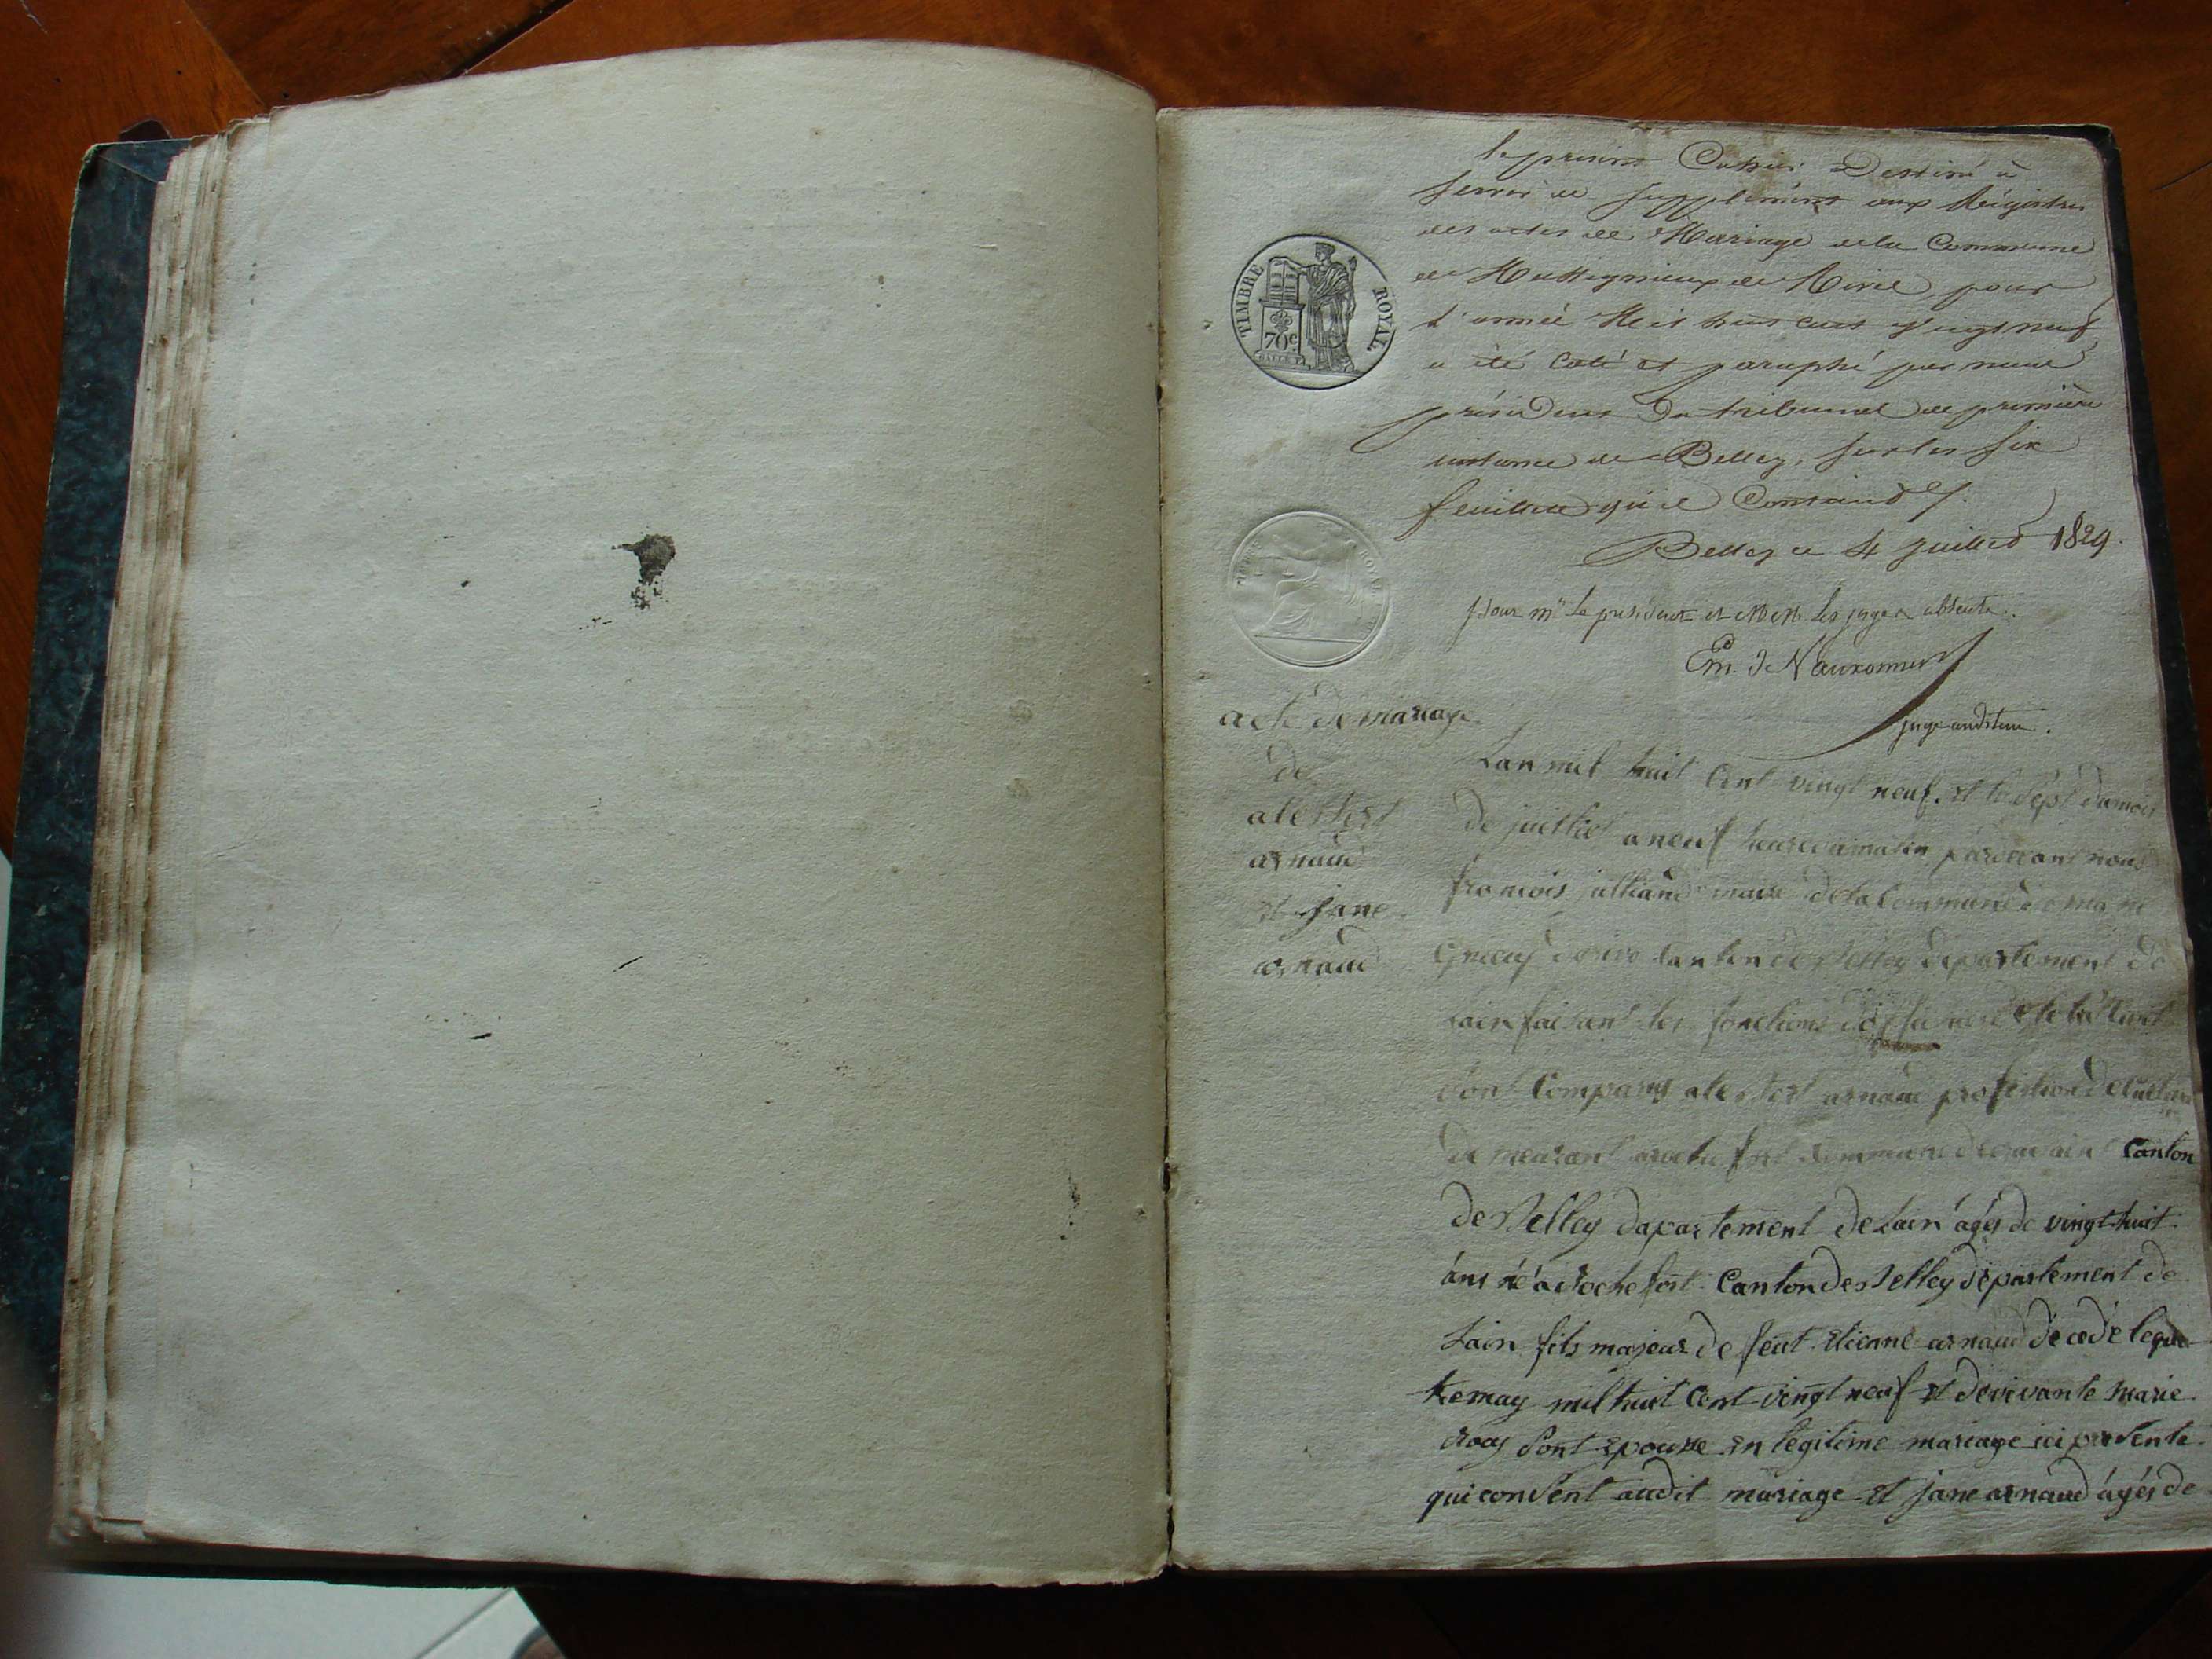 TIMBRE ROYAL
70c.
le présent Cahier Destiné à
servir de supplément aux Régistres
des actes de Mariage de la Commune
de Massignieux de Rive, pour
l'année Mil huit cent Vingt neuf
a été Coté et paraphé par nous
président Du tribunal de première
instance de Belley, sur les six
feuillets qu'il Contient
Belley ce 4 juillet 1829.
pour mr le president et MM les juges absents.
Em. De
juge auditeur.
acte de mariage
de
arnaud
et jane
arnaud
Lan mil huit Cent vingt neuf. Et le sept du mois
De juillet a neuf heure du matin pardevant nous
francois julliand maire de la Commune de
Canton de Belley departement de
Lain faisant les fonctions
Comparus arnaud profession de
De meurant Commune Canton
De Belley Dapartement De Lain agés de vingt huit
áns né a Rochefort Canton de Belley département de
Lain fils majeur De feut Etienne arnaud décédé le
may mil huit Cent vingt neuf Et de vivante marie
Roay Sont Epousse En légitime mariage ici presente
qui consent audit mariage Et jane arnaud ágés de